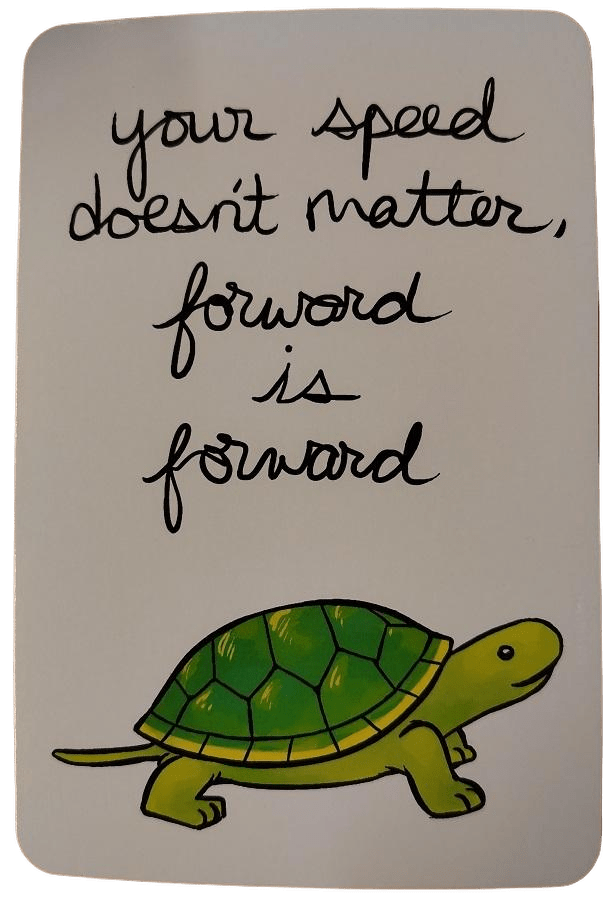 your speed
doesn't matter,
forward
is
forward